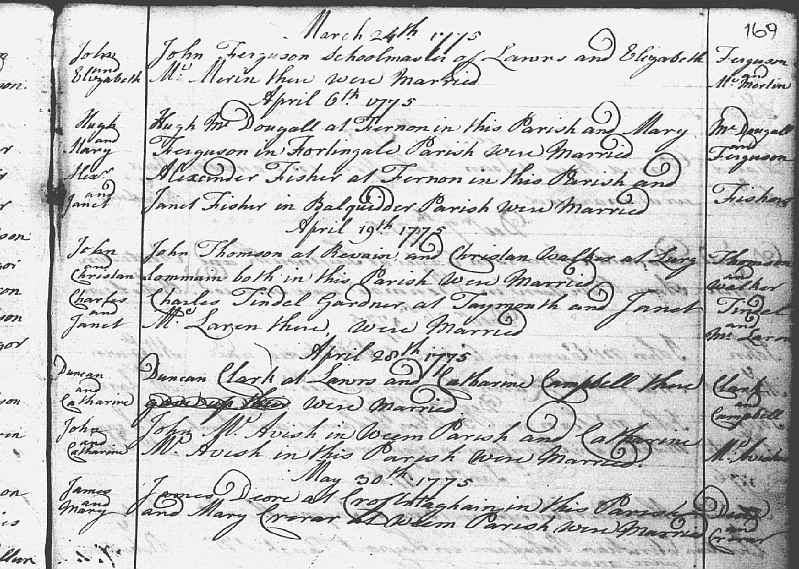 169
March 24th 1775
John and Elizabeth John Ferguson Schoolmaster of Lawrs and Elizabeth Ferguson and
Mc Merin there were Married Mc Martin
April 6th 1775
Hugh and Mary Hugh Mc Dougall at Fernon in this Parish and Mary Mc Dougall and
Ferguson in Fortingale Parish were Married Ferguson
Alexr and Janet Alexander Fisher at Fernon in this Parish and Fishers
Janet Fisher in Balquidder Parish were Married
April 19th 1775
John and Christan John Thomson at Revain and Christan Walker at Lurg Thomson and
lommam both in this Parish were Married Walker
Charles and Janet Charles Tindel Gardner at Taymouth and Janet Tindel and
Mc Laren there, were Married Mc Laren
April 28th 1775
Duncan and Catharine Duncan Clark at Lawrs and Catharine Campbell there Clark
were Married Campbell
John and Catharine John Mc Avish in Weem Parish and Catharine
Mc Avish in this Parish were Married. Mc Avish
May 30th 1775
James and Mary James Deore at in this Parish and
and Mary Crerar at Weem Parish were Married Crerar